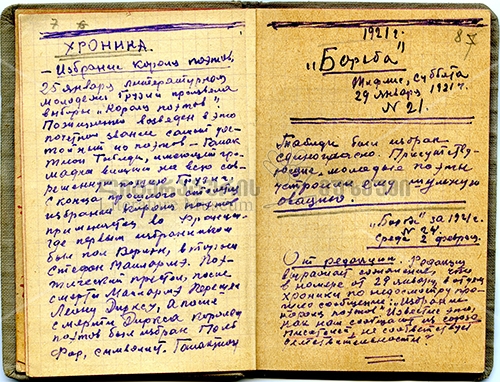 7 6
ХРОНИКА.
— Избрание короля поэтов.
25 января литературная
молодежь Грузии произвела
выборы "Короля поэтов".
в это
почетное звание самый дос-
тойный из поэтов — Галак-
тион Табидзе, имеющий гро-
на всю со-
Грузии.
С конца прошлого столетия
избрание короля поэтов
во Франции,
где первым избранником
был Пол Верлен, а вторым
Стефан Малларме. Поэ-
тический престол после
смерти Малларме перешел
Леону Дирксу. А после
смерти Диркса королем
поэтов был избран Поль
Фор, символист. Галактион
1921 г.
87
"Борьба"
Тифлис, суббота
29 января 1921 г.
№ 21.
Табидзе был избран
единогласно. Присутству-
ющие молодые поэты
устроили ему шумную
овацию.
"Борьба" за 1921 г.
№ 24.
Среда 2 февраля.
От редакции. Редакция
выражает сожаление, что
в номере от 29 января в отдел
хроники по недосмотру про-
никло сообщение: "Избрание
короля поэтов". Известие это,
как нам сообщают из союза
писателей, не соответствует
действительности."